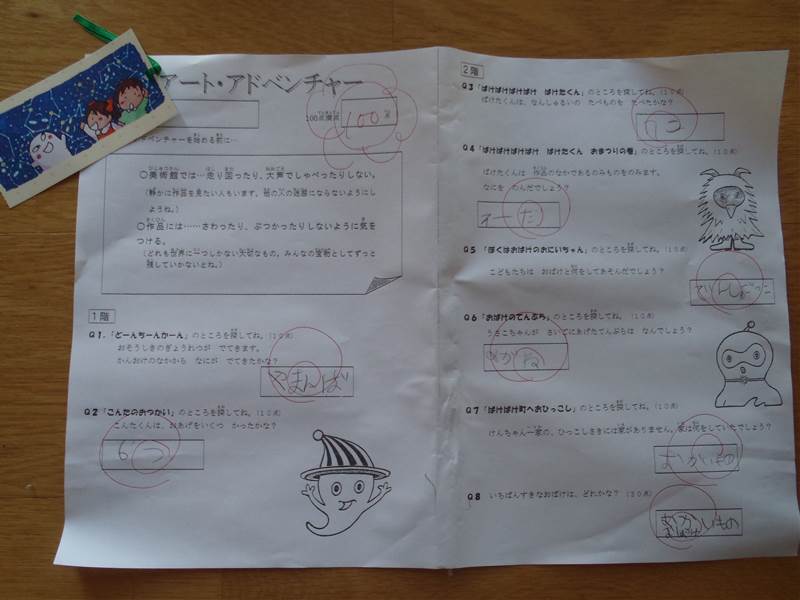 アート・アドベンチャー
100点満点
100点
アドベンチャーを始める前に…
○美術館では…走り回ったり、大声でしゃべったりしない。
(静かに作品を見たい人もいます。他の人の迷惑にならないようにしようね。)
○作品には……さわったり、ぶつかったりしないように気を
つける。
(どれも世界に一つしかない大切なもの。みんなの宝物としてずっと
残していかないとね。)
1階
Q1. 「どーんちーんかーん」のところを探してね。(10点)
おそうしきのぎょうれつが でてきます。
かんおけのなかから なにが でてきたかな?
やまんば
Q2 「こんたのおつかい」のところを探してね。(10点)
こんたくんは、おあげをいくつ かったかな?
6つ
2階
Q3 「ばけばけばけばけ ばけたくん」のところを探してね。(10点)
ばけたくんは、なんしゅるいの たべものを たべたかな?
Q4 「ばけばけばけばけ ばけたくん おまつりの巻」のところを探してね。(10点)
ばけたくんは 作品のなかであるのみものをのみます。
なにを のんだでしょう?
Q5 「ぼくはおばけのおにいちゃん」のところを探してね。(10点)
こどもたちは おばけと何をしてあそんだでしょう?
Q6 「おばけのてんぷら」のところを探してね。(10点)
うさこちゃんが さいごにあげたてんぷらは なんでしょう?
めがね
Q7 「ばけばけ町へおひっこし」のところを探してね。(10点)
けんちゃん一家の、ひっこしさきには家がありません。家は何をしていたでしょう?
おかいもの
Q8 いちばんすきなおばけは、どれかな?(30点)